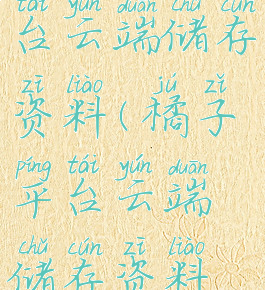 tái yún duān chǔ cún
台云端储存
zī liào jú zǐ
资料(橘子
píng tái yún duān
平台云端
chǔ cún zī liào
储存资料